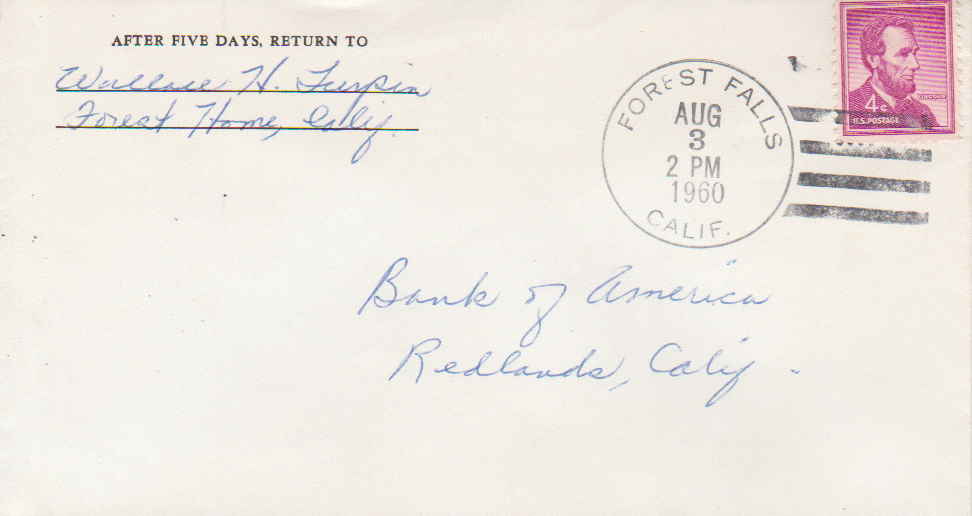 AFTER FIVE DAYS, RETURN TO
Wallace H. Turpin
Forest Home, Calif.
FOREST FALLS
AUG
3
2 PM
1960
CALIF.
4¢
U.S. POSTAGE
Bank of America
Redlands, Calif.